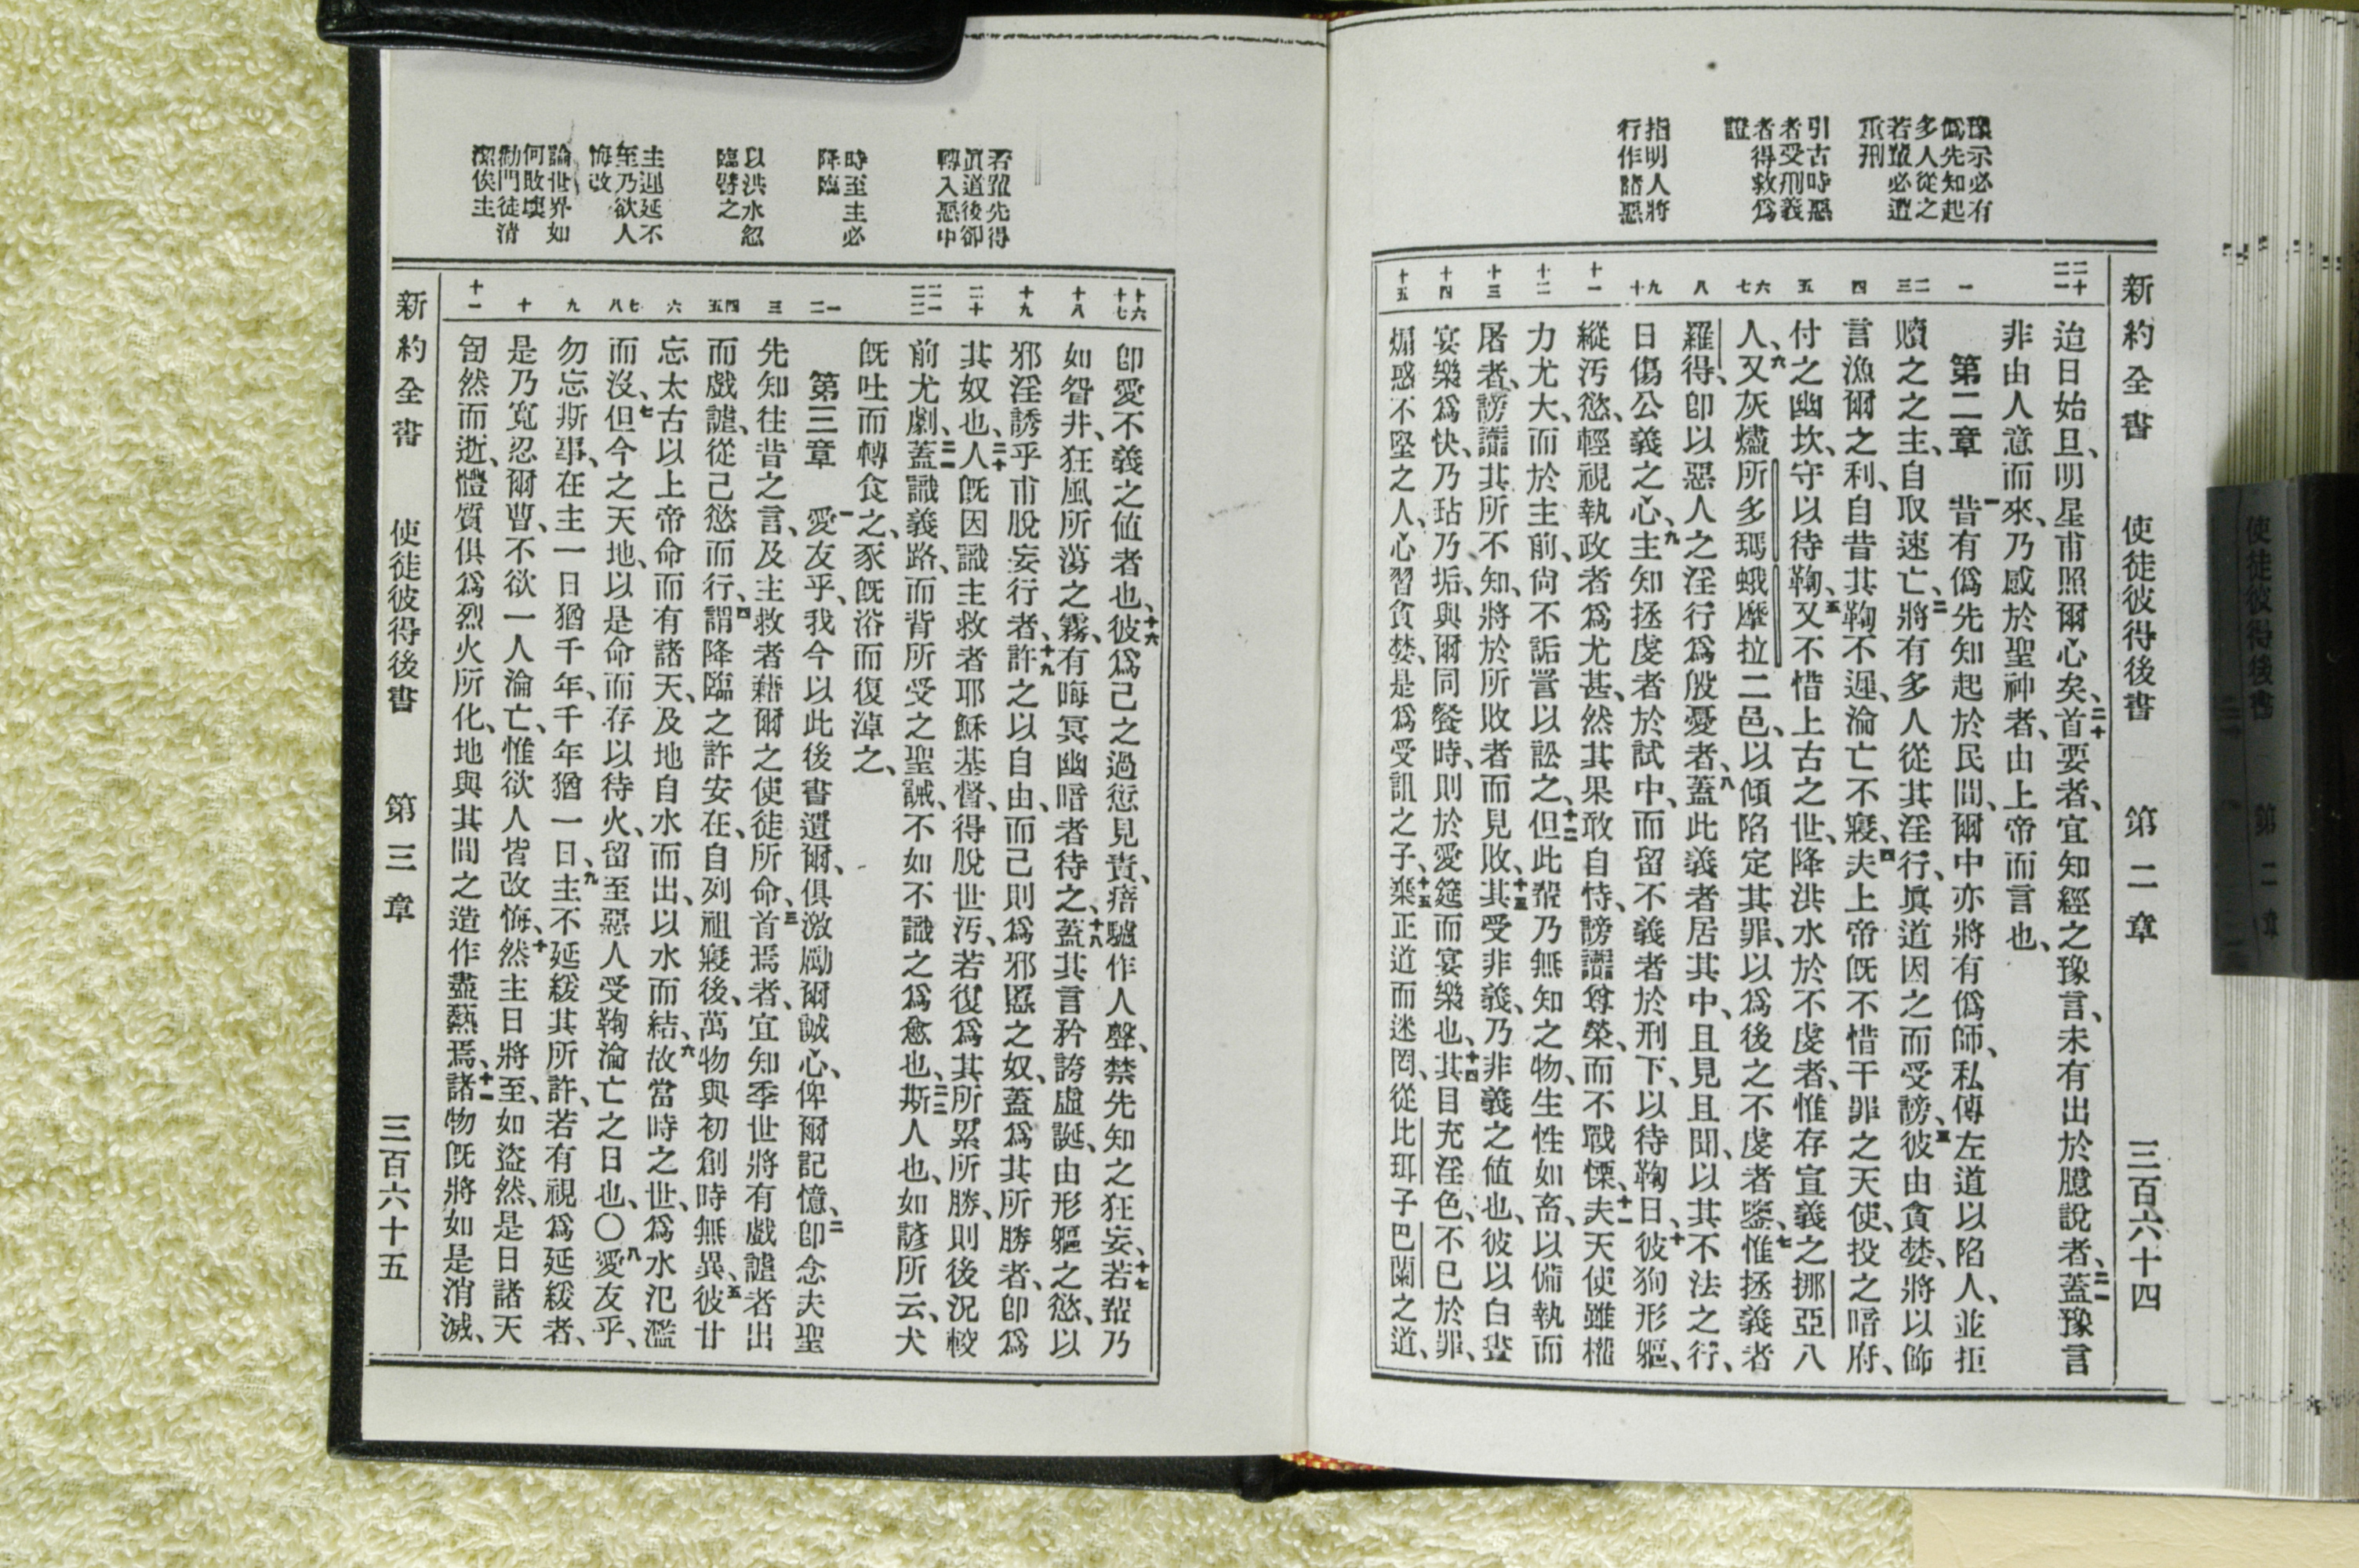 豫示必有
僞先知起
多人從之
若輩必遭
重刑
引古時惡
者受刑義
者得救爲
證
指明人將
行作諸惡
新約全書 使徒彼得後書 第二章 三百六十四
二十
二一
一
二
三
四
五
六
七
八
九
十
十一
十二
十三
十四
十五
迨日始旦、明星甫照爾心矣、二十首要者、宜知經之豫言、未有出於臆說者、二一蓋豫言
非由人意而來、乃感於聖神者、由上帝而言也、
第二章 一昔有僞先知起於民間、爾中亦將有僞師、私傳左道以陷人、並拒
贖之之主、自取速亡、二將有多人從其淫行、眞道因之而受謗、三彼由貪婪、將以飾
言漁爾之利、自昔其鞫不遲、淪亡不寢、四夫上帝旣不惜干罪之天使、投之暗府、
付之幽坎、守以待鞫、五又不惜上古之世、降洪水於不虔者、惟存宣義之挪亞八
人、六又灰燼所多瑪蛾摩拉二邑、以傾陷定其罪、以爲後之不虔者鑒、七惟拯義者
羅得、卽以惡人之淫行爲殷憂者、八蓋此義者居其中、且見且聞、以其不法之行、
日傷公義之心、九主知拯虔者於試中、而留不義者於刑下、以待鞫日、十彼狥形軀、
縱汚慾、輕視執政者爲尤甚、然其果敢自恃、謗讟尊榮、而不戰慄、十一夫天使雖權
力尤大、而於主前、尙不詬詈以訟之、十二但此輩乃無知之物、生性如畜、以備執而
屠者、謗讟其所不知、將於所敗者而見敗、十三其受非義、乃非義之値也、彼以白晝
宴樂爲快、乃玷乃垢、與爾同餐時、則於愛筵而宴樂也、十四其目充淫色、不已於罪、
煽惑不堅之人、心習貪婪、是爲受詛之子、十五棄正道而迷罔、從比珥子巴蘭之道、
若輩先得
眞道後卻
轉入惡中
時至主必
降臨
以洪水忽
臨譬之
主遲延不
至乃欲人
悔改
論世界如
何敗壞
勸門徒清
潔俟主
十六
十七
十八
十九
二十
二一
二二
一
二
三
四
五
六
七
八
九
十
十一
卽愛不義之値者也、十六彼爲己之過愆見責、瘖驢作人聲、禁先知之狂妄、十七若輩乃
如眢井、狂風所蕩之霧、有晦冥幽暗者待之、十八蓋其言矜誇虛誕、由形軀之慾、以
邪淫誘乎甫脫妄行者、十九許之以自由、而己則爲邪慝之奴、蓋爲其所勝者、卽爲
其奴也、二十人旣因識主救者耶穌基督、得脫世汚、若復爲其所累所勝、則後況較
前尤劇、二一蓋識義路、而背所受之聖誡、不如不識之爲愈也、二二斯人也、如諺所云、犬
旣吐而轉食之、豕旣浴而復淖之、
第三章 一愛友乎、我今以此後書遺爾、俱激勵爾誠心、俾爾記憶、二卽念夫聖
先知往昔之言、及主救者藉爾之使徒所命、三首焉者、宜知季世將有戲謔者出
而戲謔、從己慾而行、四謂降臨之許安在、自列祖寢後、萬物與初創時無異、五彼甘
忘太古以上帝命而有諸天、及地自水而出、以水而結、六故當時之世、爲水氾濫
而沒、七但今之天地、以是命而存以待火、留至惡人受鞫淪亡之日也、〇八愛友乎、
勿忘斯事、在主一日猶千年、千年猶一日、九主不延緩其所許、若有視爲延緩者、
是乃寬忍爾曹、不欲一人淪亡、惟欲人皆改悔、十然主日將至、如盜然、是日諸天
訇然而逝、體質俱爲烈火所化、地與其間之造作盡爇焉、十一諸物旣將如是消滅、
新約全書 使徒彼得後書 第三章 三百六十五